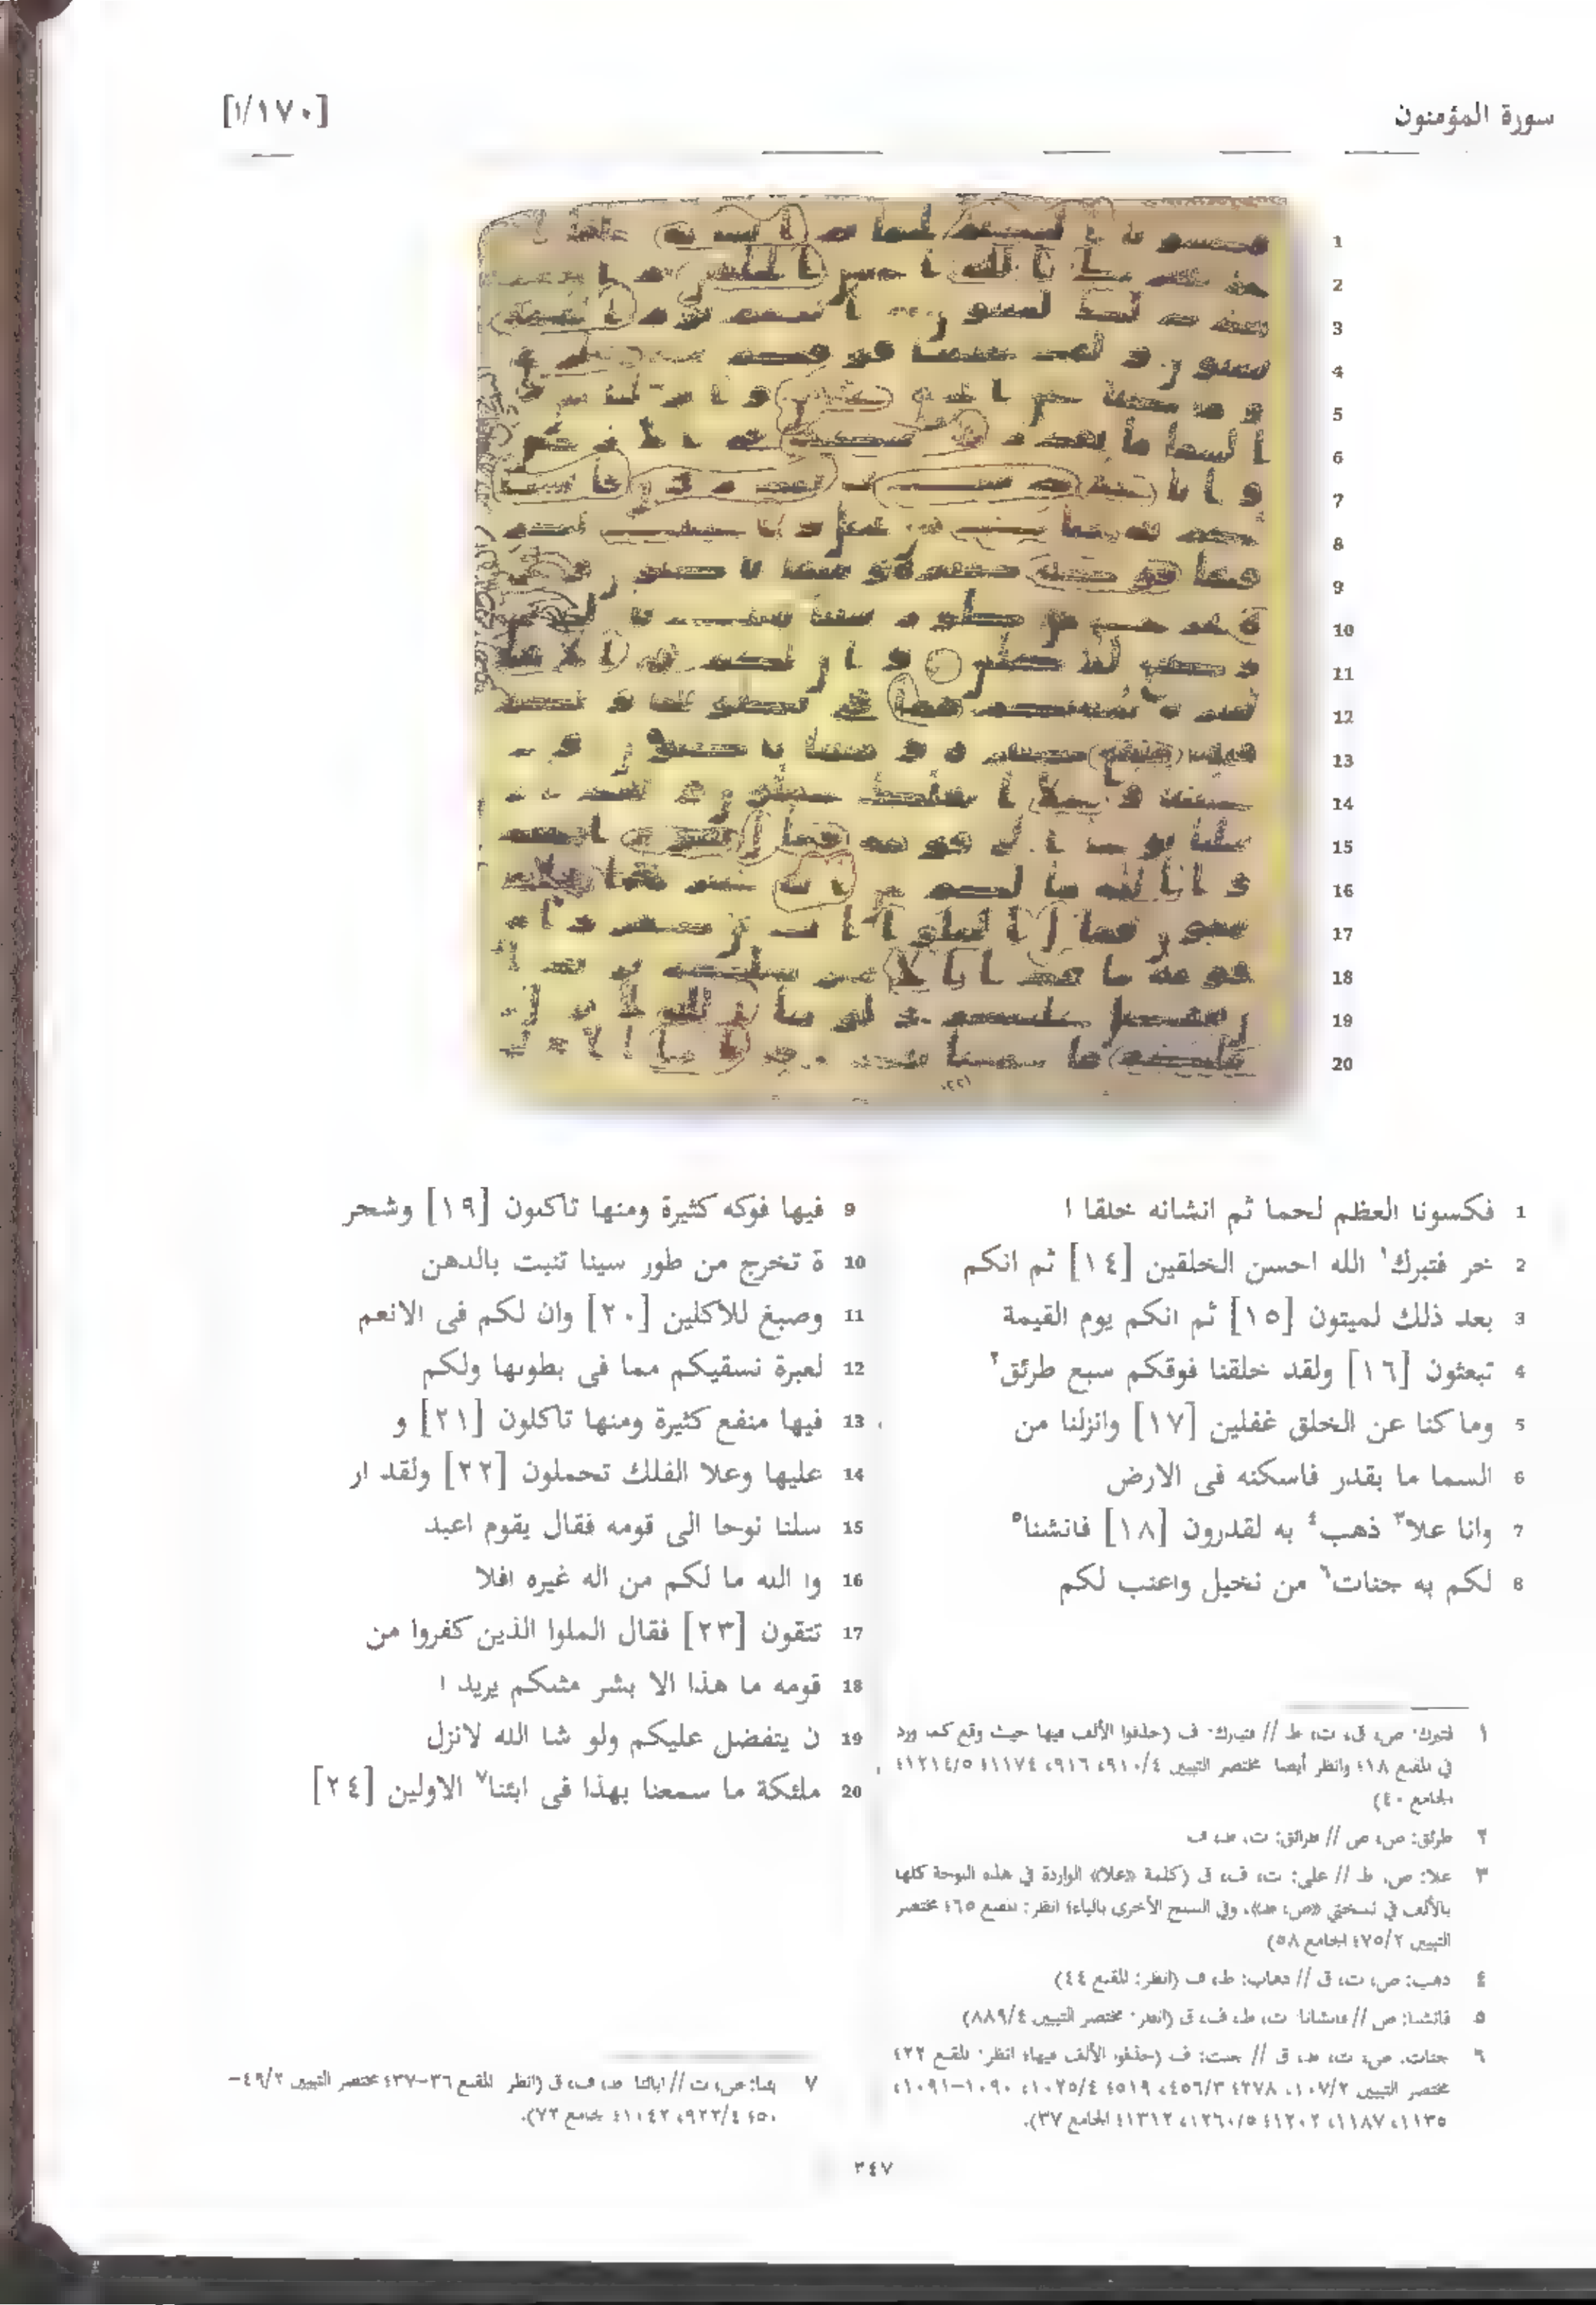 سورة المؤمنون
[١/١٧٠]
1 فكسونا العظم لحما ثم انشانه خلقا ا
2 خر فتبرك١ الله احسن الخلقين [١٤] ثم انكم
3 بعد ذلك لميتون [١٥] ثم انكم يوم القيمة
4 تبعثون [١٦] ولقد خلقنا فوقكم سبع طرئق٢
5 وما كنا عن الخلق غفلين [١٧] وانزلنا من
6 السما ما بقدر فاسكنه فى الارض
7 وانا علا٣ ذهب٤ به لقدرون [١٨] فانشنا٥
8 لكم به جنات٦ من نخيل واعنب لكم
9 فيها فوكه كثيرة ومنها تاكلون [١٩] وشجر
10 ة تخرج من طور سينا تنبت بالدهن
11 وصبغ للاكلين [٢٠] وان لكم فى الانعم
12 لعبرة نسقيكم مما فى بطونها ولكم
13 فيها منفع كثيرة ومنها تاكلون [٢١] و
14 عليها وعلا الفلك تحملون [٢٢] ولقد ار
15 سلنا نوحا الى قومه فقال يقوم اعبد
16 وا الله ما لكم من اله غيره افلا
17 تتقون [٢٣] فقال الملوا الذين كفروا من
18 قومه ما هذا الا بشر مثلكم يريد ا
19 ن يتفضل عليكم ولو شا الله لانزل
20 ملئكة ما سمعنا بهذا فى ابئنا٧ الاولين [٢٤]
١ فتبرك: ص، ق، ت، ط // فتبارك: ف (حذفوا الألف فيها حيث وقع كما ورد
في المقنع ١٨؛ وانظر أيضا مختصر التبيين ٩١٠/٤، ٩١٦، ١١٧٤؛ ١٢١٤/٥؛
الجامع ٤٠)
٢ طرئق: ص، ق // طرائق: ت، ط، ف
٣ علا: ص، ط // على: ت، ف، ق (كلمة «علا» الواردة في هذه اللوحة كلها
بالألف في نسختي «ص، ط»، وفي النسخ الأخرى بالياء؛ انظر: المقنع ٦٥؛ مختصر
التبيين ٧٥/٢؛ الجامع ٥٨)
٤ ذهب: ص، ت، ق // ذهاب: ط، ف (انظر: المقنع ٤٤)
٥ فانشنا: ص // فانشانا: ت، ط، ف، ق (انظر: مختصر التبيين ٨٨٩/٤)
٦ جنات: ص، ت، ط، ق // جنت: ف (حذفوا الألف فيها؛ انظر: المقنع ٢٢؛
مختصر التبيين ١٠٧/٢، ٢٧٨؛ ٤٥٦/٣، ٥١٩؛ ١٠٢٥/٤، ١٠٩٠-١٠٩١،
١١٣٥، ١١٨٧، ١٢٠٢؛ ١٢٦٠/٥، ١٣١٢؛ الجامع ٣٧).
٧ ابئنا: ص، ت // ابائنا: ط، ف، ق (انظر: المقنع ٣٦-٣٧؛ مختصر التبيين ٤٩/٢-
٥٠؛ ٩٢٢/٤، ١٠٤٢؛ الجامع ٧٣).
٣٤٧